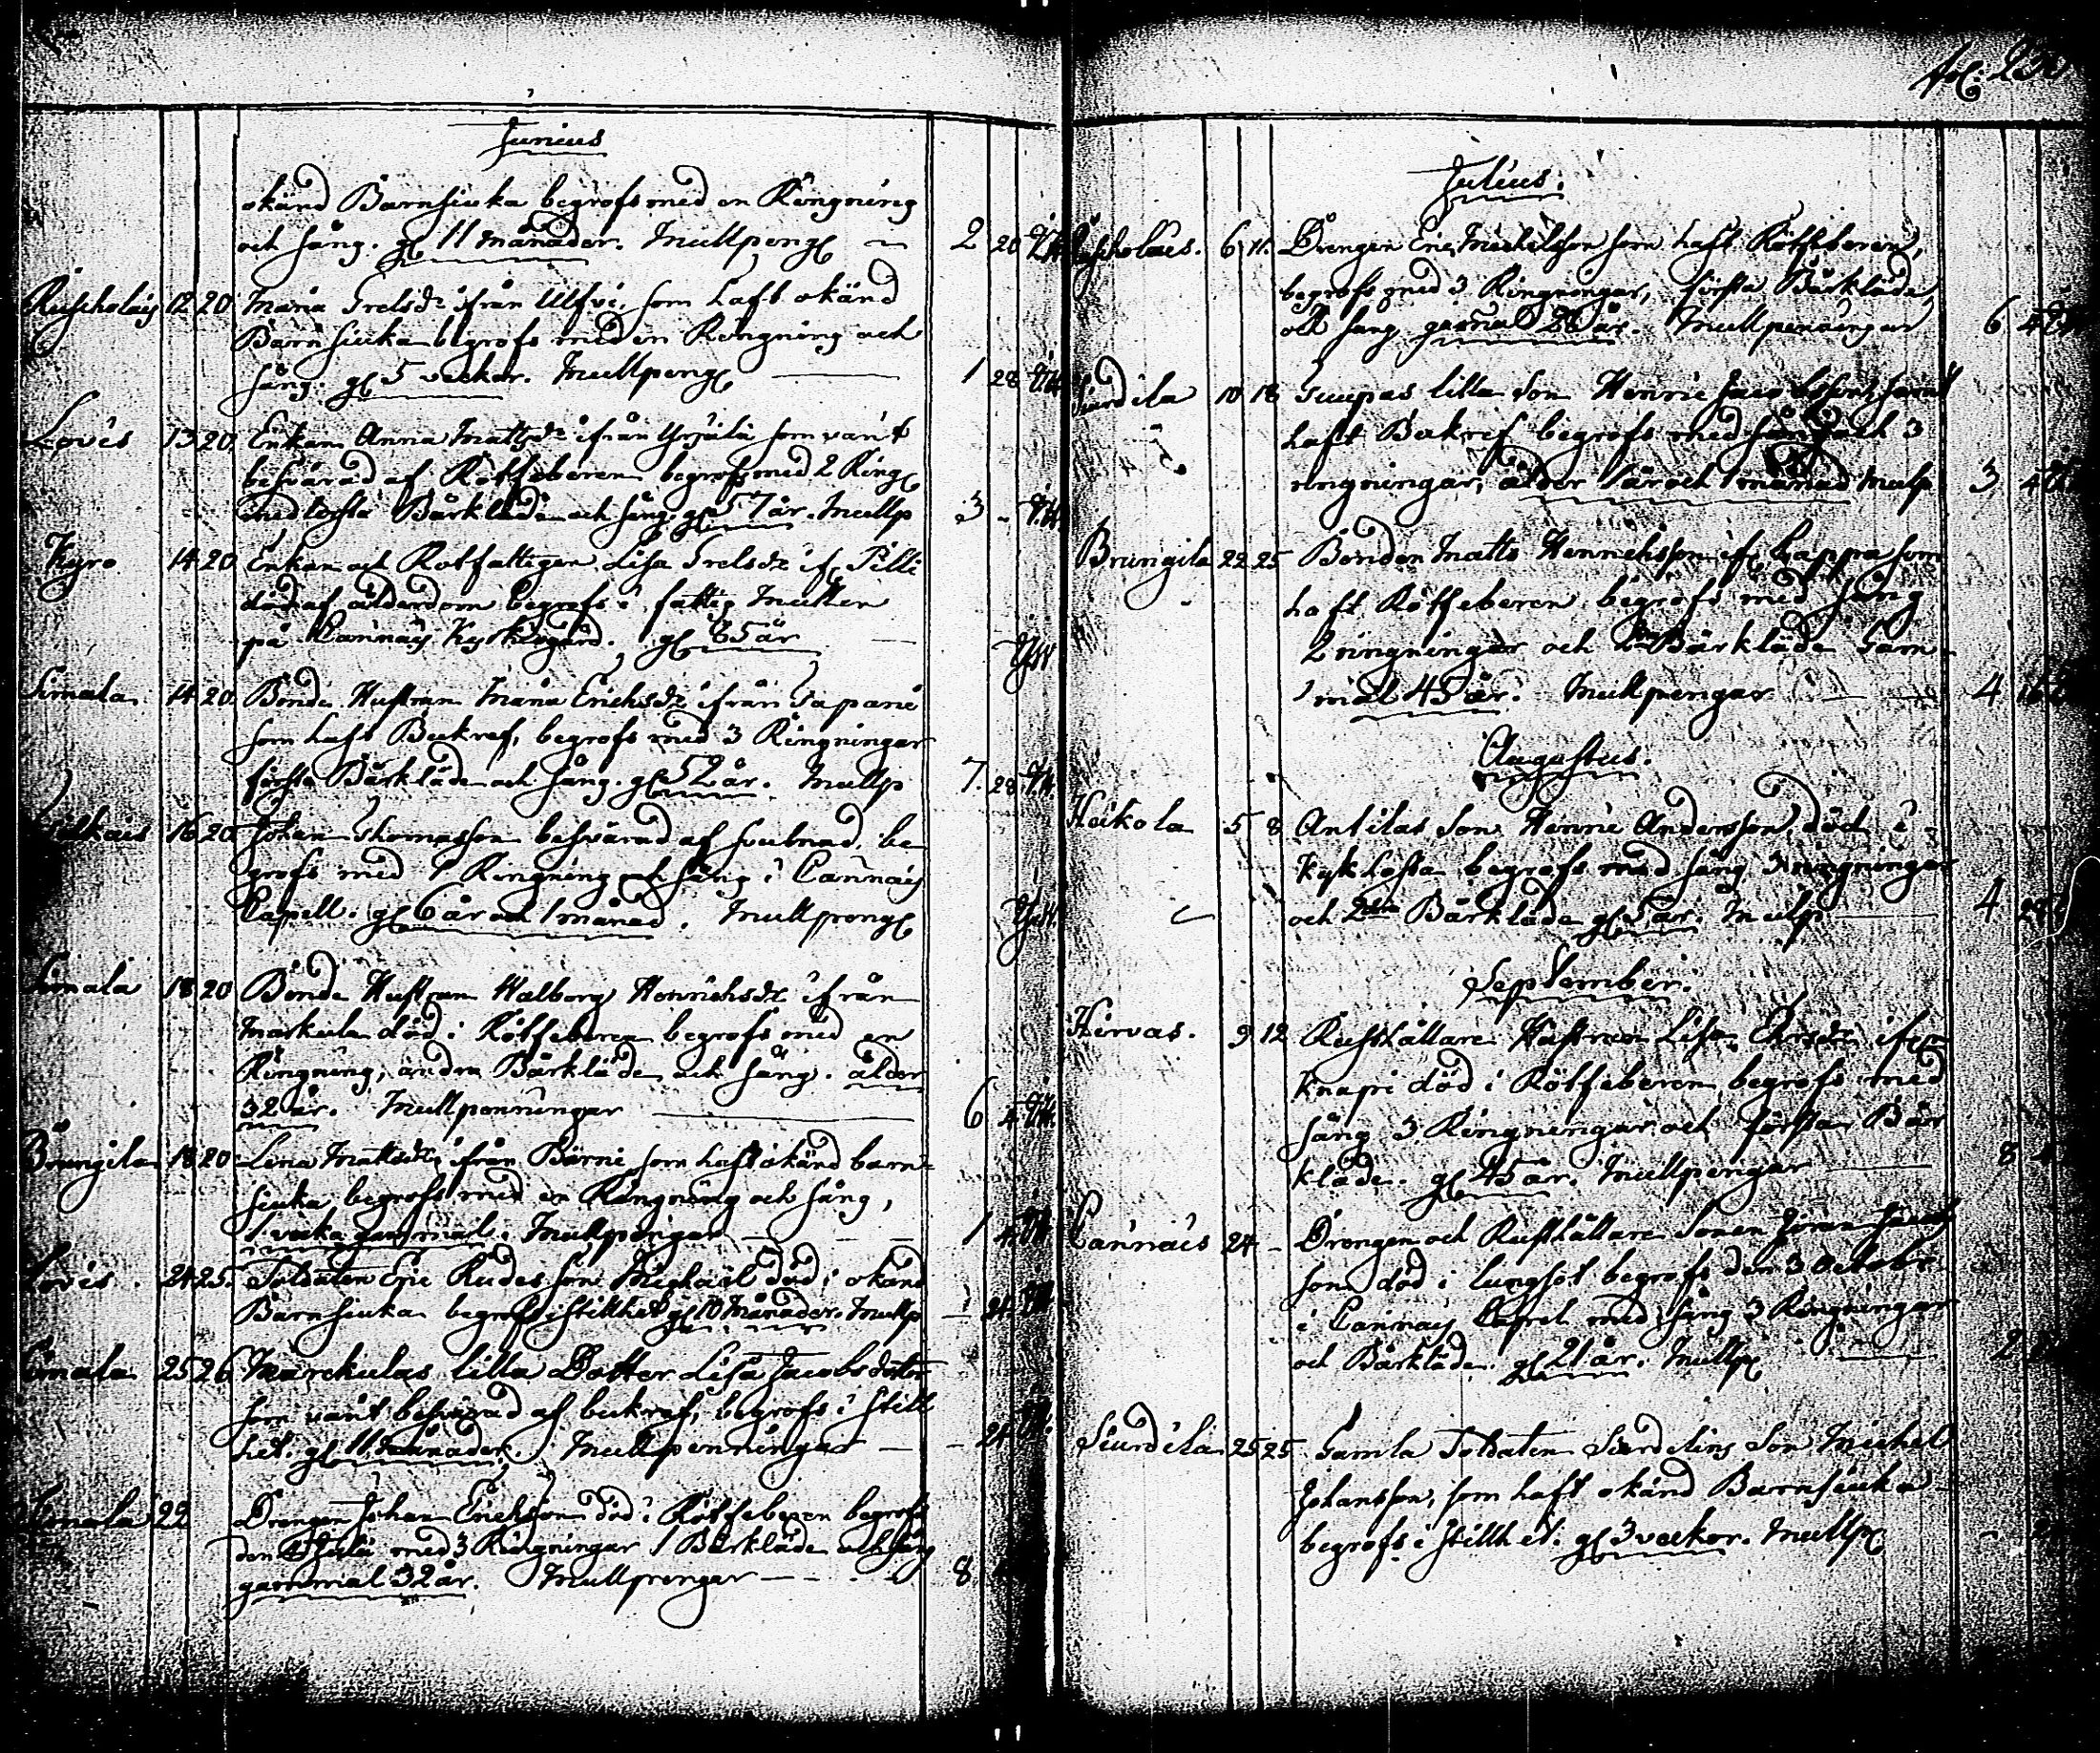 Junius
okänd Barnsiuka begrofs med en Ringning
och sång. gl 11 månader. Mullpengl 2 20
12 20 Maria Grelsdr ifrån Ulfvi, som haft okänd
Barnsiuka begrofs med en Ringning och
sång. gl 5 veckor. Mullpengl 1 28
Lovis 13 20 Enkan Anna Mattsdr ifrån Yrjälä som varit
besvärad af Rötfeberen begrofs med 2 Ringl
med första Bårkläde och sång gl 57 år. Mullp 3 -
Kyro 14 20 Enkan och Rotfattigen Lisa Grelsdr ifl Pilli
död af ålderdom begrofs i fattig Mullen
på Cannäs Kyrkiogård. gl 85 år
Simala 14 20 Bonde Hustrun Maria Erichsdr ifrån Tapani
som haft Bukref, begrofs med 3 Ringningar
första Bårkläde och sång. gl 52 år. Mullp 7. 28
16 20 Johan Thomasson besvärad af svulnad, be
grofs med 1 Ringning och sång i Cannäs
Capell. gl 6 år och 1 månad. Mullprengl
Simala 18 20 Bonde Hustrun Walborg Henrichsdr ifrån
Markula död i Rötfeberen begrofs med en
Ringning, andra Bårkläde och sång. ålder
32 år. Mullpenningar 6 4
Brungila 18 20 Lena Mattsdr ifrån Börni som haft okänd barn-
siuka begrofs med en Ringning och sång,
1 vecka gammal. Mullpengar 1 4
Lovis. 24 25. Soldaten Eric Rudes son Michael död i okänd
Barnsiuka begrofs i stillhet gl 10 Månader. Mullp - 24
Simala 25 26 Marckulas lilla Dotter Lisa Jacobsdotter
som varit besvärad af bukref, begrofs i still
het. gl 11 månader. Mullpenningar - 24
Simala 22 Drengen Johan Erichsson död i Rötfeberen begrofs
den 4 Julii med 3 Ringningar 1 Bårkläde och sång
gammal 32 år. Mullprengar 8
fol:
Julius.
6 11. Drengen Eric Michelsson som haft Rötfeberen,
begrofs med 3 Ringningar, första Bårkläde
och sång gammal 26 år. Mullpenningar 6
Siurdila 10 18 lilla Son Henric Jacobsson som
haft Bukref begrofs med sång och 3
ringningar, ålder 1 år och 1 månad Mulp 3
Brungila 22 25 Bonden Matts Henrichsson ifl Cappra som
haft Rötfeberen begrofs med sång
2 ringningar och 2dra Bårkläde Gam-
mal 45 år. Mullpengar 4
Augustus.
Heikola 5 8 Antilas Son Henric Andersson död i
Kykhosta begrofs med sång 3 ringningar
och 2dra Bårkläde gl 5 år. Mulp 4
September.
Hirvas. 9 12 Rusthållare Hustrun Lisa
Knapi död i Rötfeberen begrofs med
sång 3 Ringningar och första Bår
kläde. gl 45 år. Mullpengar 8
Cannäis 24 - Drengen och Rusthållare Sonen Jöran
som död i lungsot begrofs den 3 Octobr
i Cannäs Capel med sång 3 Ringningar
och Bårkläde. gl 21 år. Mullpl 2
Siurdila 25 25 Gamla Soldaten Siurdelins Son Michel
Johansson, som haft okänd Barnsiuka
begrofs i stillhet. gl 3 veckor. Mullpl